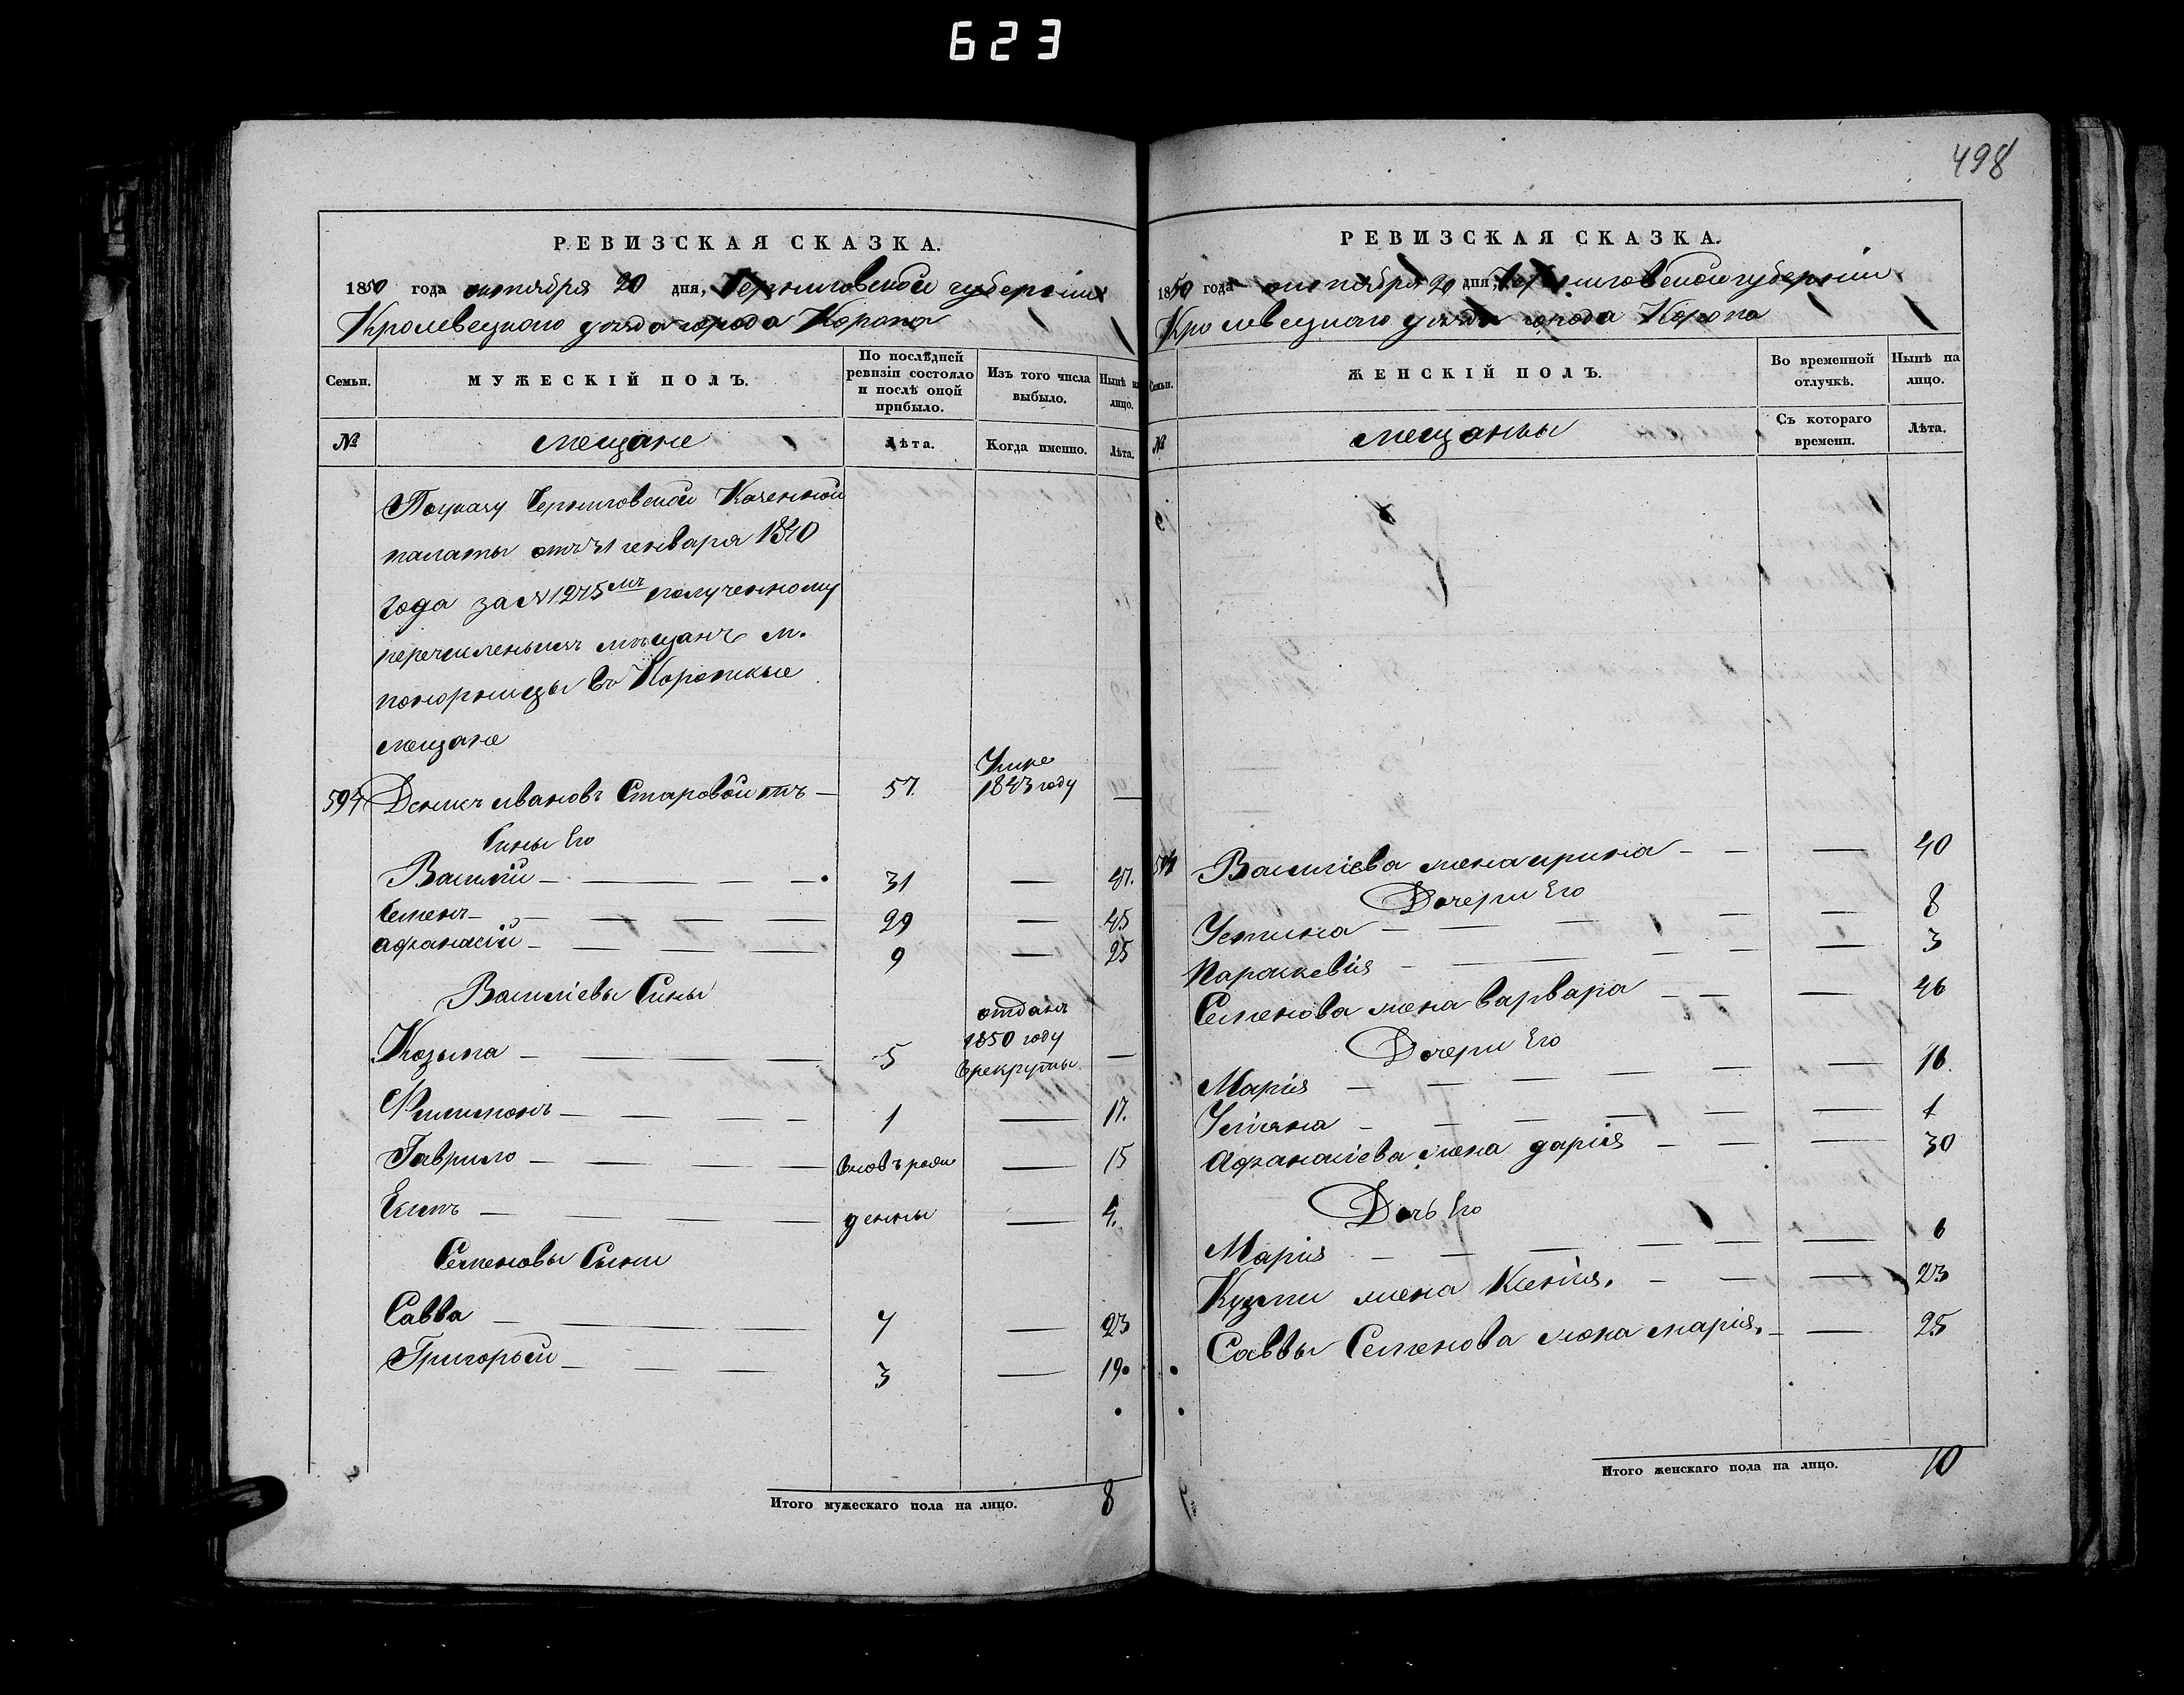 623
498
РЕВИЗСКАЯ СКАЗКА.
1850 года октября 20 дня, Черниговской губерніи
Кролевецкаго уезда города Коропа
Семьи. МУЖЕСКІЙ ПОЛЪ. По послѣдней ревизіи состояло и послѣ оной прибыло. Изъ того числа выбыло. Нынѣ на лицо.
№ мещане Лѣта. Когда именно. Лѣта.
Поуказу Черниговской Казенной
палаты отъ 31 генваря 1840
года за № 1275мъ полученному
перечисленымъ мещанъ м.
понорницы въ Коропские
мещане
594 Денисъ Ивановъ Старовойтъ — 57. Умре 1843 году —
Сины Его
Василій — 31 — 47.
Семенъ — 29 — 45
Афанасій — 9 — 25
Василіевы Сины
Козьма — 5 отданъ 1850 году врекруты —
Филимонъ — 1 — 17.
Гаврило — вновь рож — 15
Екимъ — денны — 4.
Семеновы Сыни
Савва — 7 — 23
Григорьей — 3 — 19
Итого мужескаго пола на лицо. 8
РЕВИЗСКАЯ СКАЗКА.
1850 года октября 20 дня, Черниговской губерніи
Кролевецкаго уезда города Коропа
Семьи. ЖЕНСКІЙ ПОЛЪ. Во временной отлучкѣ. Нынѣ на лицо.
№ мещанки Съ котораго времени. Лѣта.
594 Василіева жена ирина — — 40
Дочери Его
Устина — — 8
Параскевія — — 3
Семенова жена варвара — — 46
Дочери Его
Марія — — 16.
Уліяна — — 1
Афанасіева жена дарія — — 30
Дочь Его
Марія — — 6
Кузми жена Ксенія. — — 23
Саввы Семенова жена марія. — — 25
Итого женскаго пола на лицо. 10